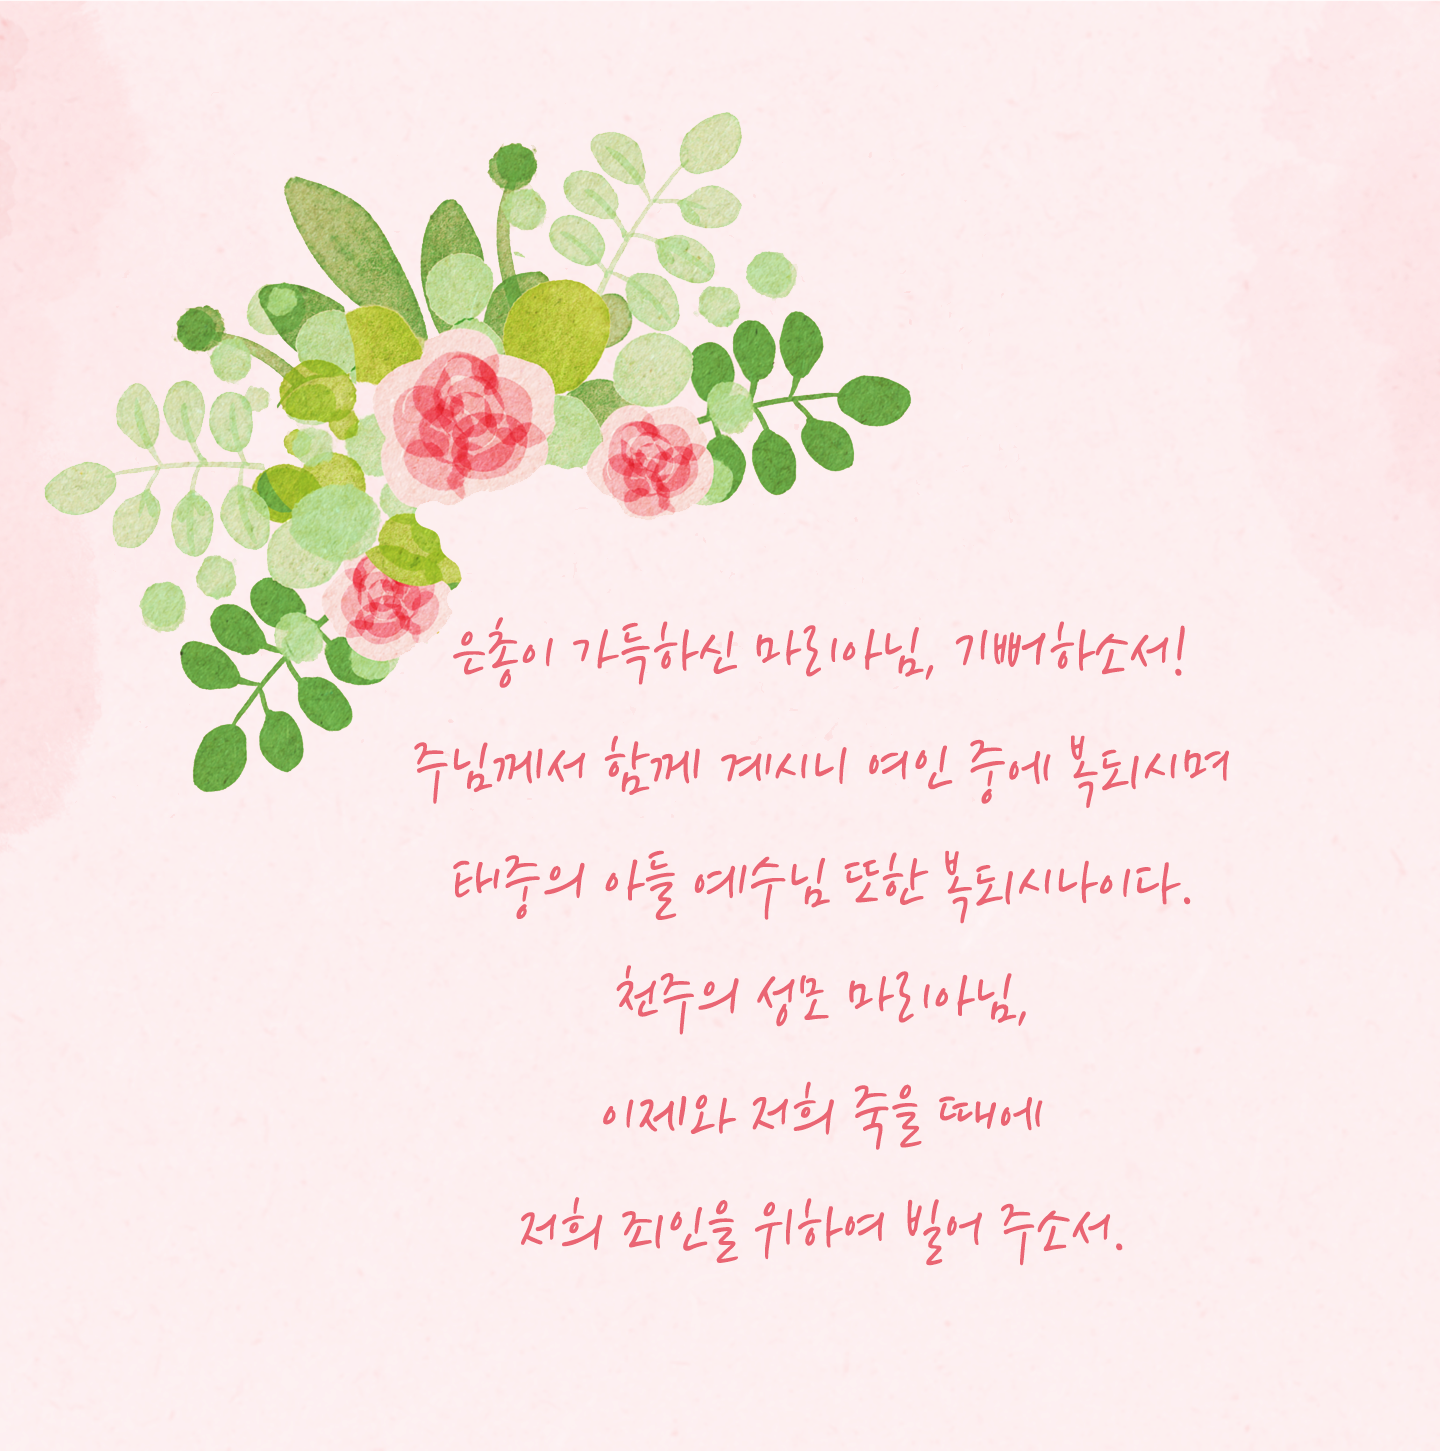 은총이 가득하신 마리아님, 기뻐하소서!
주님께서 함께 계시니 여인 중에 복되시며
태중의 아들 예수님 또한 복되시나이다.
천주의 성모 마리아님,
이제와 저희 죽을 때에
저희 죄인을 위하여 빌어 주소서.